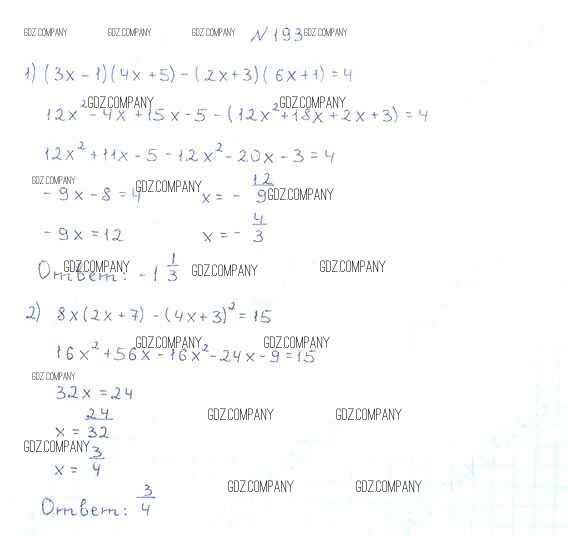 GDZ.COMPANY GDZ.COMPANY GDZ.COMPANY N193 GDZ.COMPANY
1) (3x - 1)(4x + 5) - (2x + 3)(6x + 1) = 4
GDZ.COMPANY GDZ.COMPANY
12x² - 4x + 15x - 5 - (12x² + 18x + 2x + 3) = 4
12x² + 11x - 5 - 12x² - 20x - 3 = 4
GDZ.COMPANY GDZ.COMPANY GDZ.COMPANY
- 9x - 8 = 4 x = - 12/9
- 9x = 12 x = - 4/3
GDZ.COMPANY GDZ.COMPANY GDZ.COMPANY
Ответ: -1 1/3
2) 8x(2x + 7) - (4x + 3)² = 15
GDZ.COMPANY GDZ.COMPANY
16x² + 56x - 16x² - 24x - 9 = 15
GDZ.COMPANY
32x = 24
GDZ.COMPANY GDZ.COMPANY
x = 24/32
GDZ.COMPANY
x = 3/4
GDZ.COMPANY GDZ.COMPANY
Ответ: 3/4